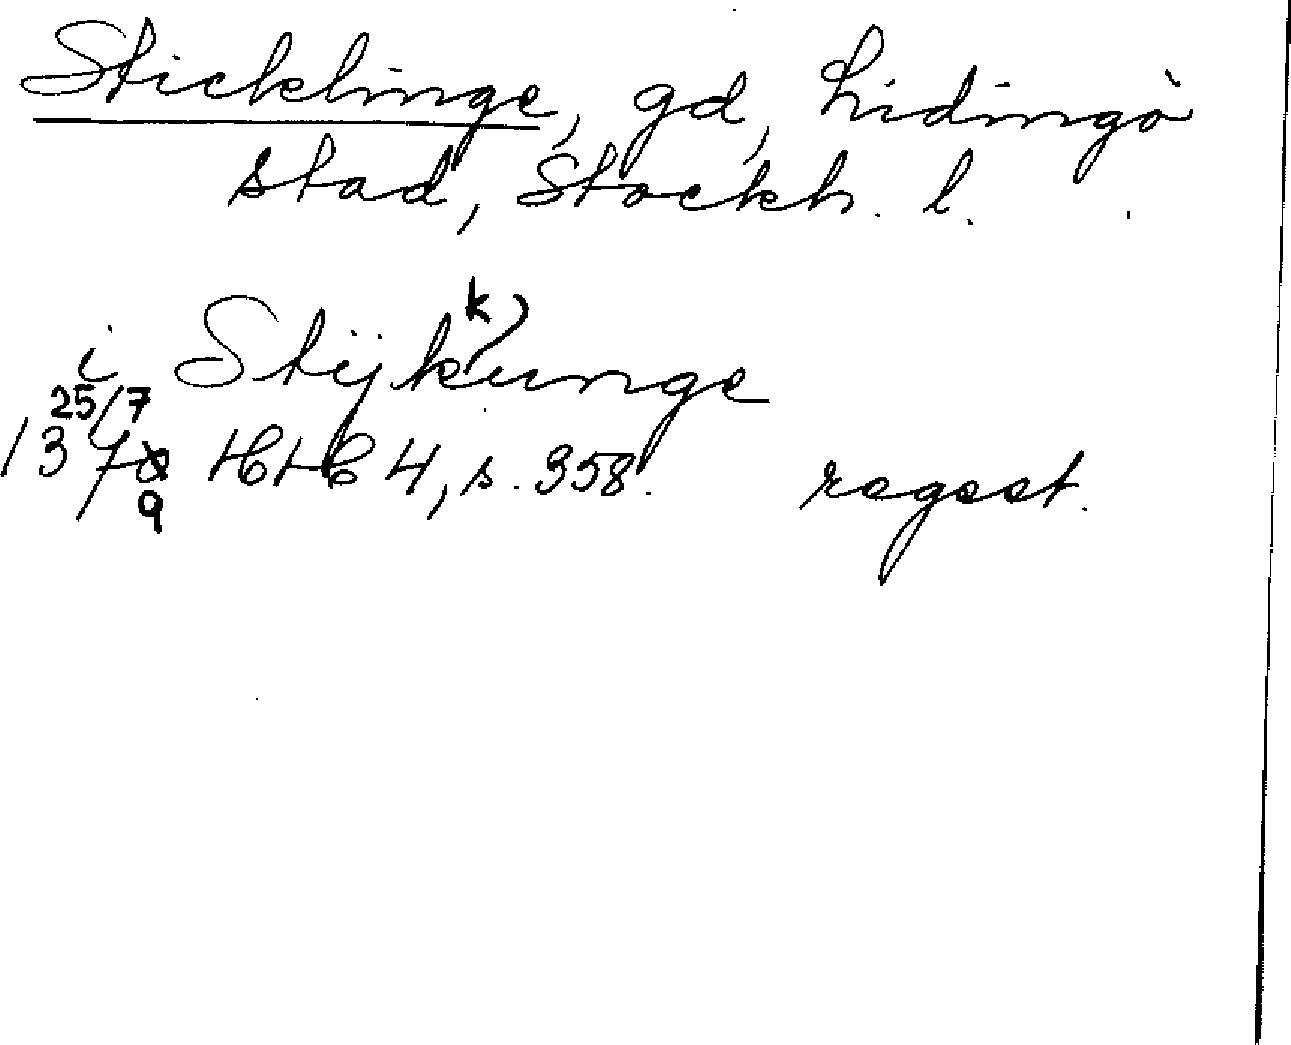 Sticklinge, gd, Lidingö
stad, Stockh. l.
i Stijkkunge
25/7
1379 HH 4, s. 358. regest.